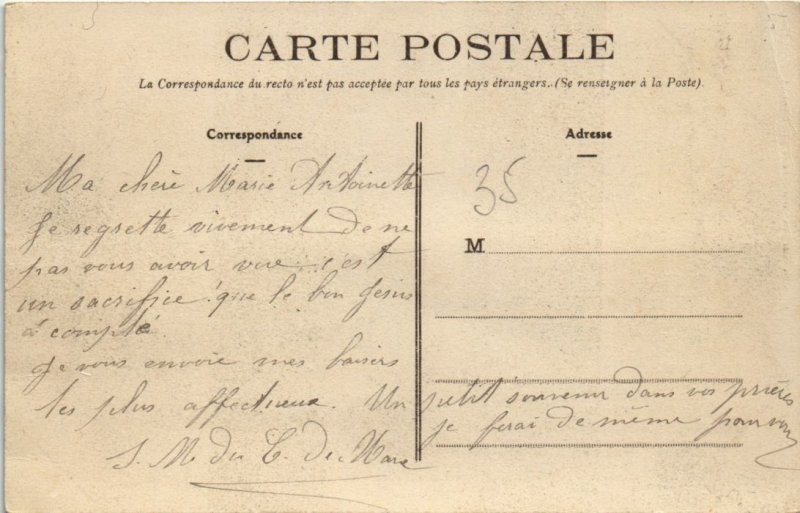 35
CARTE POSTALE
La Correspondance du recto n'est pas acceptée par tous les pays étrangers. (Se renseigner à la Poste).
Correspondance
Adresse
Ma chère Marie Antoinette
Je regrette vivement de ne
pas vous avoir vue. c'est
un sacrifice que le bon Jésus
à compté
Je vous envoie mes baisers
les plus affectueux. Un petit souvenir dans vos prières
je ferai de même pour vous
S. M. du C. de
35
M